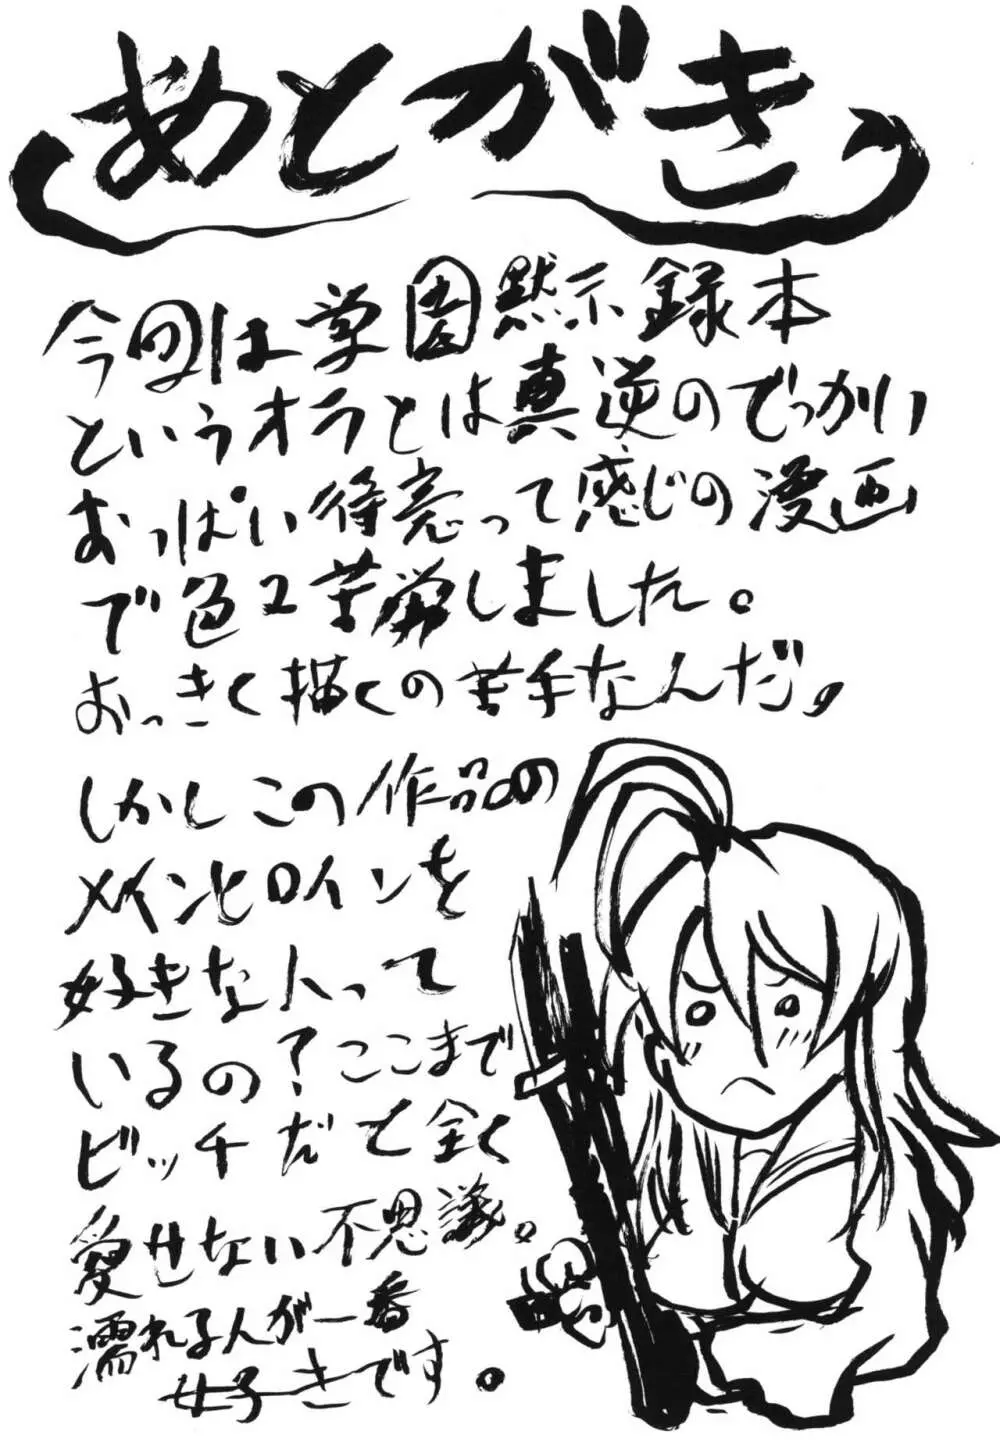 あとがき
今回は学園黙示録本
というオラとは真逆のでっかい
おっぱい待売って感じの漫画
で色々苦労しました。
おっきく描くの苦手なんだ。
しかしこの作品の
メインヒロインを
好きな人って
いるの?ここまで
ビッチだと全く
愛せない不思議。
濡れる人が一番
好きです。